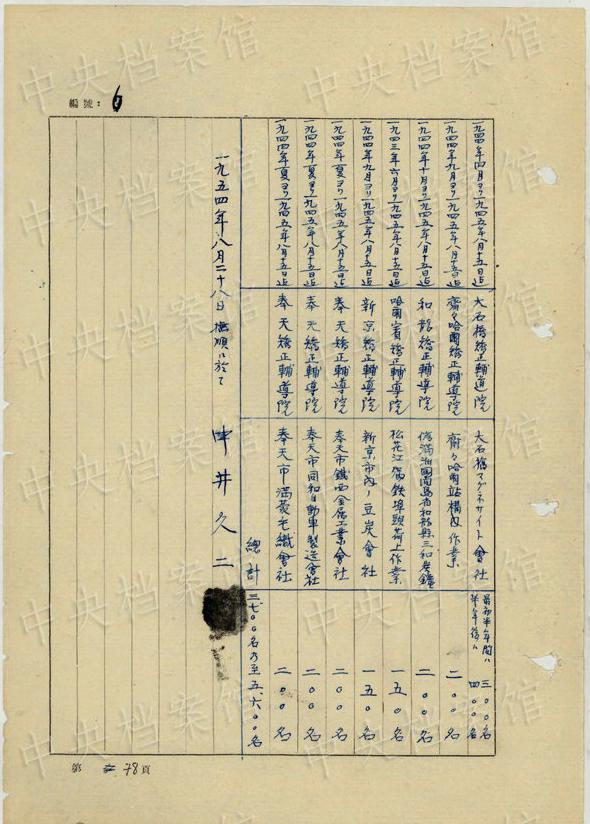 編號:6
一九四四年四月ヨリ一九四五年八月十五日迄 大石橋矯正輔導院 大石橋マグネサイト會社 最初半年間ハ 三〇〇名
半年後ハ 四〇〇名
一九四四年九月ヨリ一九四五年八月十五日迄 齊々哈爾矯正輔導院 齊々哈爾站構内作業 二〇〇名
一九四四年十月ヨリ一九四五年八月十五日迄 和龍矯正輔導院 偽滿洲國間島省和龍縣三和 二〇〇名
一九四三年六月ヨリ一九四五年八月十五日迄 哈爾賓矯正輔導院 松花江 埠頭荷上作業 一五〇名
一九四四年九月ヨリ一九四五年八月十五日迄 新京矯正輔導院 新京市内ノ豆炭會社 一五〇名
一九四四年夏ヨリ一九四五年八月十五日迄 奉天矯正輔導院 奉天市鐵西金屬工業會社 二〇〇名
一九四四年夏ヨリ一九四五年八月十五日迄 奉天矯正輔導院 奉天市同和自動車製造會社 二〇〇名
一九四四年夏ヨリ一九四五年八月十五日迄 奉天矯正輔導院 奉天市滿蒙毛織會社 二〇〇名
總計 三七〇〇名乃至五、六〇〇名
一九五四年八月二十八日 撫順ニ於テ 中井久二
第 78頁
中央档案馆